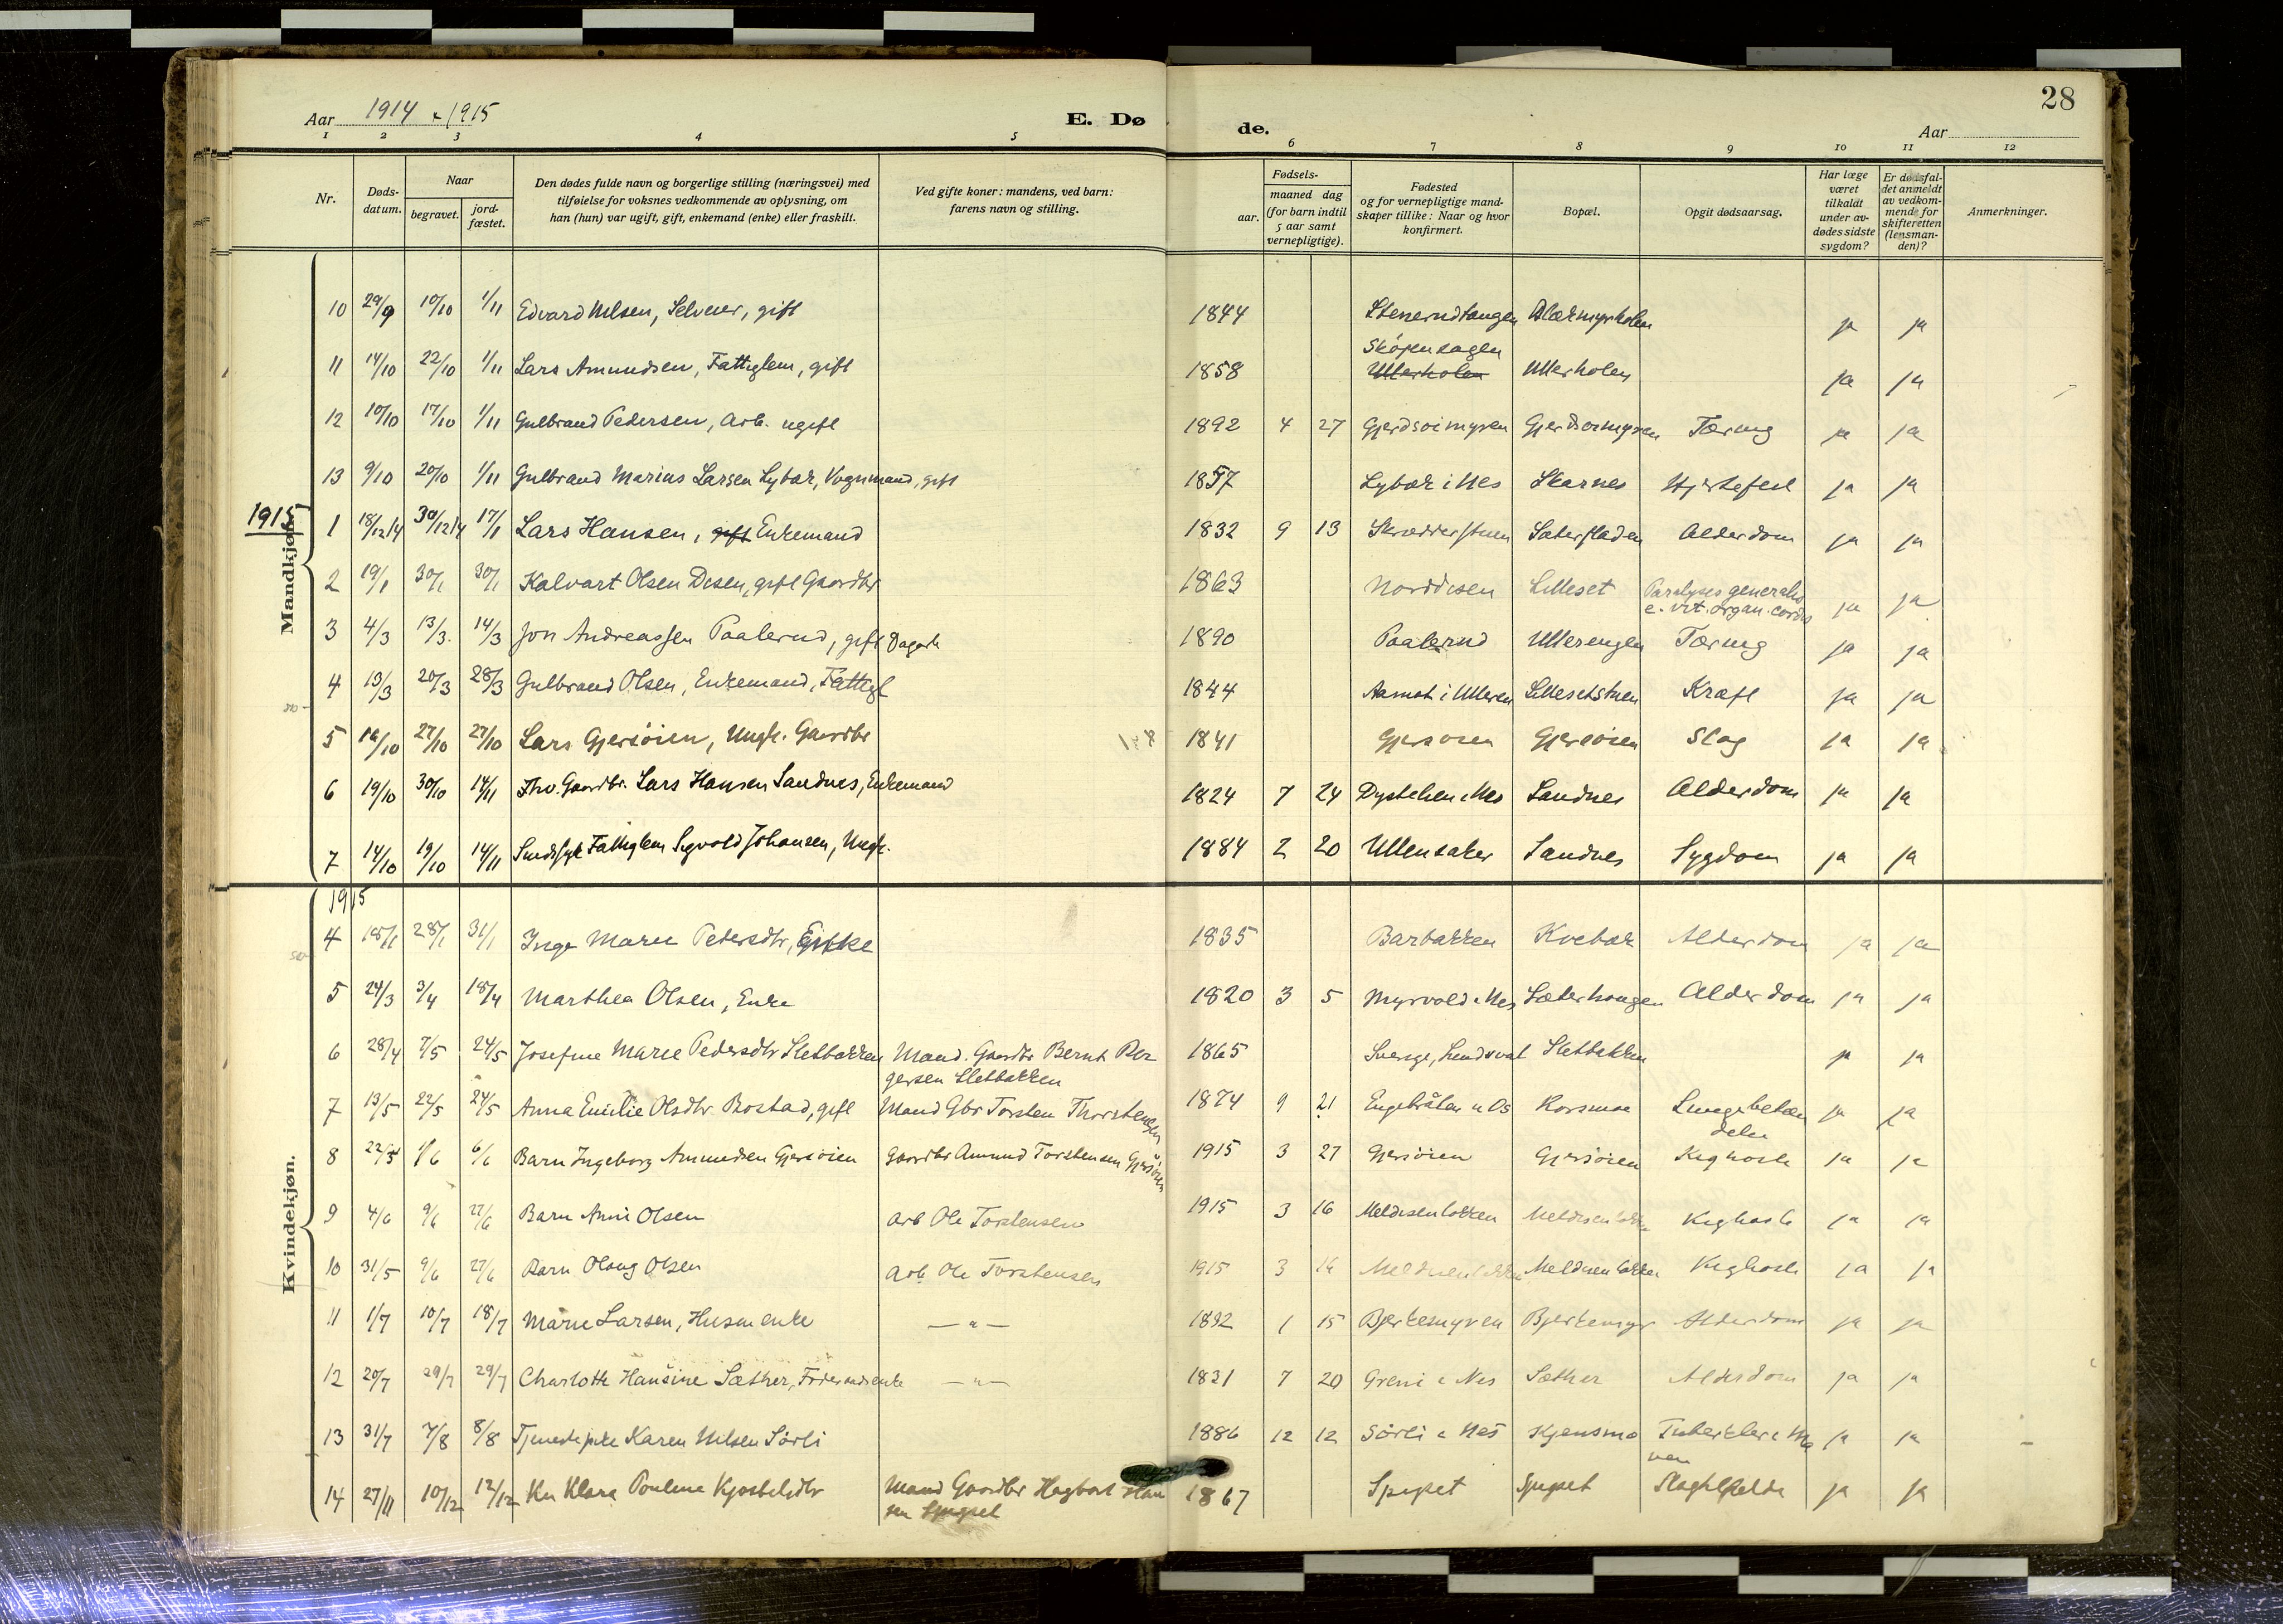 Aar 1914 - 1915
E. Dø
de.
28
Aar
1 2 3 4 5 6 7 8 9 10 11 12
Nr.
Døds-
datum.
Naar
begravet.
jord-
fæstet.
Den dødes fulde navn og borgerlige stilling (næringsvei) med
tilføielse for voksnes vedkommende av oplysning, om
han (hun) var ugift, gift, enkemand (enke) eller fraskilt.
Ved gifte koner: mandens, ved barn:
farens navn og stilling.
Fødsels-
aar.
maaned dag
(for barn indtil
5 aar samt
vernepligtige).
Fødested
og for vernepligtige mand-
skaper tillike: Naar og hvor
konfirmert.
Bopæl.
Opgit dødsaarsag.
Har læge
været
tilkaldt
under av-
dødes sidste
sygdom?
Er dødsfal-
det anmeldt
av vedkom-
mende for
skifteretten
(lensman-
den)?
Anmerkninger.
Mandkjøn.
10 29/9 10/10 1/11 Edvard Nilsen, Selveier, gift 1844 Stenerudtangen ja ja
Skøjensagen
11 14/10 22/10 1/11 Lars Amundsen, Fattiglem, gift 1858 Ullerholen Ullerholen ja ja
12 10/10 17/10 1/11 Gulbrand Pedersen, Arb. ugift 1892 4 27 Gjerdsoimyren Gjerdsoimyren Tæring ja ja
13 9/10 20/10 1/11 Gulbrand Marius Larsen Lybæk, Vognmand, gift 1857 Lybæk i Nes Skarnes Hjertefeil ja ja
1915
1 18/12 14 30/12 14 17/1 Lars Hansen, gift Enkemand 1832 9 13 Skrædderstuen Sæterfladen Alderdom ja ja
2 19/1 30/1 30/1 Kalvart Olsen Disen, gift Gaardbr 1863 Norddisen Lilleset Paralyses generalis
e. vit. organ. cordis ja ja
3 4/3 13/3. 14/3 Jon Andreassen Paalerud, gift Dagarb 1890 Paalerud Ullerengen Tæring ja ja
4 13/3 20/3 28/3 Gulbrand Olsen, Enkemand, Fattigl 1844 Aamot i Ulleren Lillesetstuen Kræft ja ja
5 16/10 27/10 27/10 Lars Gjersøien, Ungk. Gaardbr 1841 Gjersøien Gjersøien Slag ja ja
6 19/10 30/10 14/11 Fhv. Gaardbr. Lars Hansen Sandnes, Enkemand 1824 7 24 Sandnes Alderdom ja ja
7 14/10 19/10 14/11 Sindssyk Fattiglem Sigvold Johansen, Ungk. 1884 2 20 Ullensaker Sandnes Sygdom ja ja
Kvindekjøn.
1915
4 18/1 28/1 31/1 Inge Marie Petersdtr, Enke 1835 Barbakken Kvebæk Alderdom ja ja
5 24/3 3/4 18/4 Marthea Olsen, Enke 1820 3 5 Myrvold i Nes Sæterhaugen Alderdom ja ja
6 28/4 7/5 24/5 Josefine Marie Pedersdtr Sletbakken Mand. Gaardbr Bernt Bir
gersen Sletbakken 1865 Sverige, Sletbakken ja ja
7 13/5 22/5 24/5 Anna Emilie Olsdtr. Bostad, gift Mand Gbr Torsten Thorstensen 1874 9 21 Engebråten Korsmoe Lungebetæn
delse ja ja
8 22/5 1/6 6/6 Barn Ingeborg Amundsen Gjersøien Gaardbr Amund Torstensen Gjersøien 1915 3 27 Gjersøien Gjersøien Kighoste ja ja
9 4/6 9/6 27/6 Barn Anni Olsen Arb Ole Torstensen 1915 3 16 Meldisenbakken Meldisenbakken Kighoste ja ja
10 31/5 9/6 27/6 Barn Olaug Olsen Arb Ole Torstensen 1915 3 16 Meldisenbakken Meldisenbakken Kighoste ja ja
11 1/7 10/7 18/7 Marie Larsen, Husm enke — " — 1832 1 15 Bjerkemyren Bjerkemyr Alderdom ja ja
12 20/7 29/7 29/7 Charlotte Hansine Sæther, Føderaadsenke — " — 1831 7 20 Greni i Nes Sæther Alderdom ja ja
13 31/7 7/8 8/8 Tjenestepike Karen Nilsen Sørli 1886 12 12 Sørli i Nes Kjensmo Tuberkler i Ma
ven ja ja
14 27/11 10/12 12/12 Ku Klara Pouline Kjostelsdtr Mand Gaardbr Hagbart Han
sen Spigset 1867 Spigset Spigset ja ja